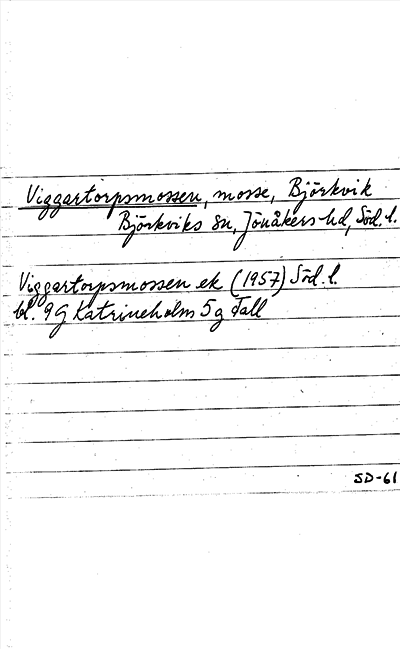 Viggartorpsmossen, mosse, Björkvik
Björkviks sn, Jönåkers hd, Söd. l.
Viggartorpsmossen ek (1957) Söd. l.
bl. 9G Katrineholm 5g Fall
SD-61